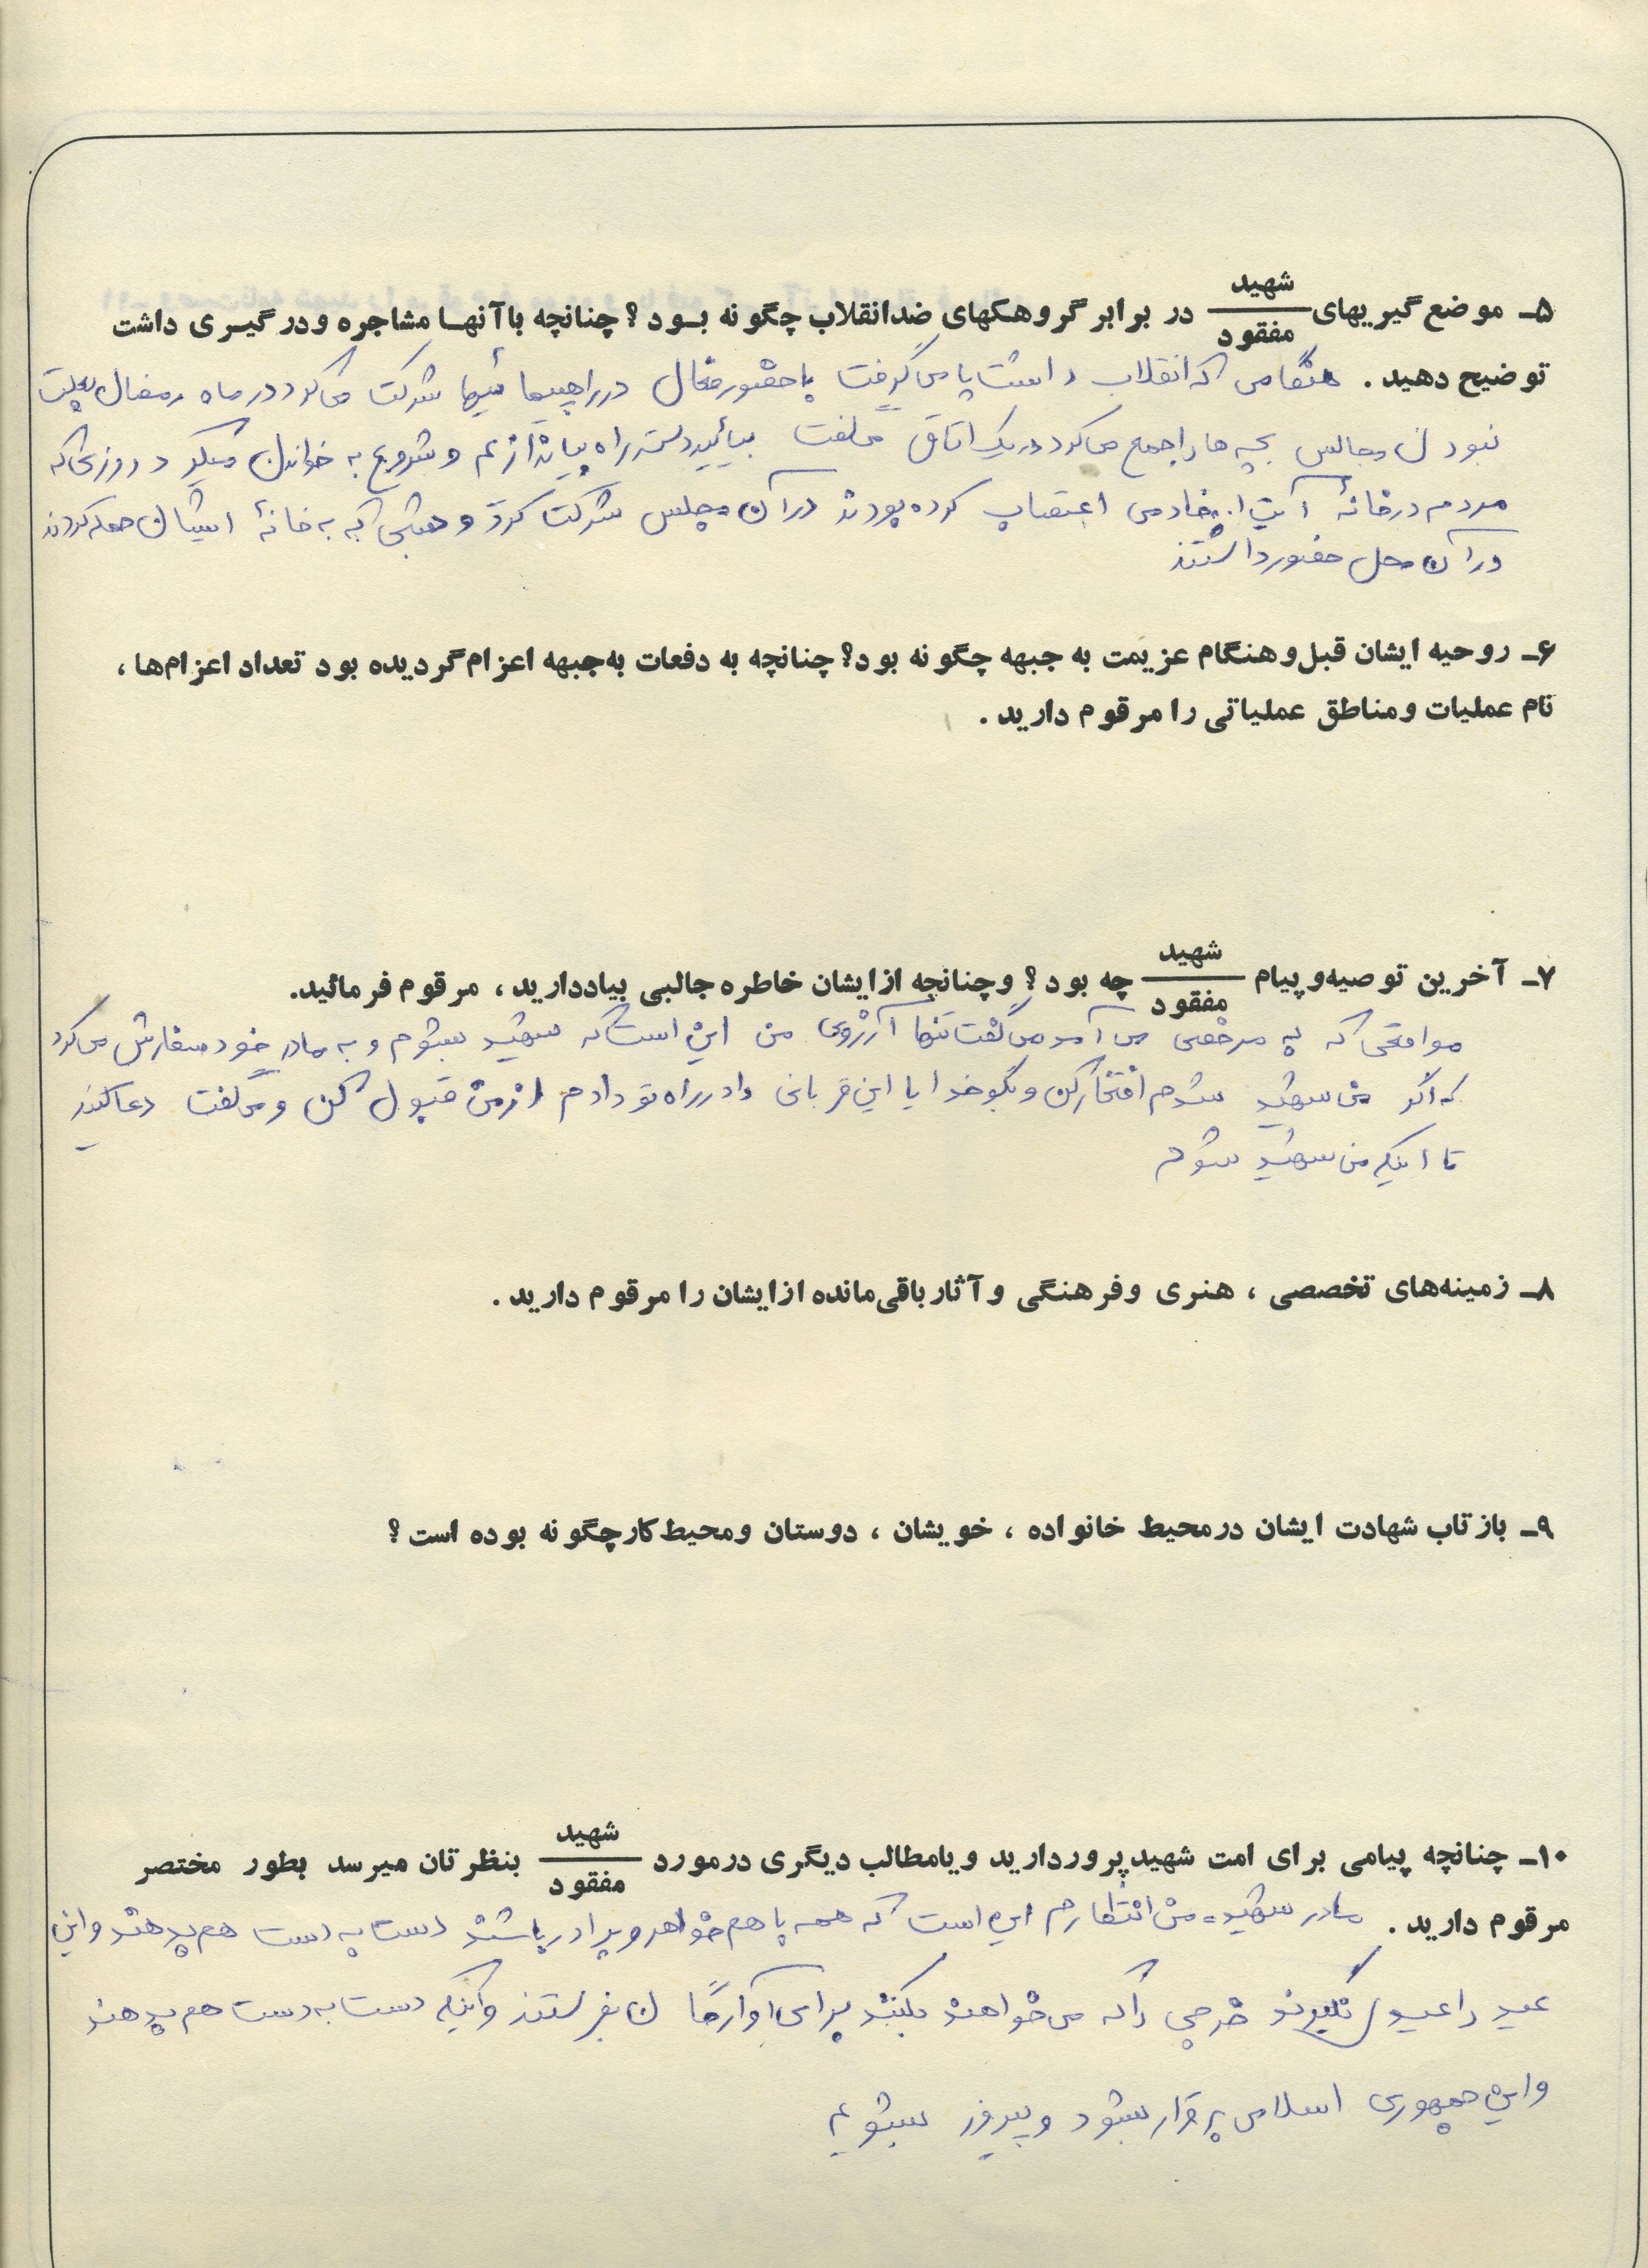 ۵ـ موضع‌گیریهای شهید/مفقود در برابر گروهکهای ضدانقلاب چگونه بـود؟ چنانچه باآنهـا مشاجره ودرگیـری داشت
توضیح دهید. هنگامی که انقلاب داشت پا می گرفت با حضور فعال در راهپیمائیها شرکت می کرد در ماه رمضال بعلت
نبودن مجالس بچه ها را جمع می کرد در یک اتاق می گفت بیائید دسته راه بیاندازیم و شروع به خواندن میکرد روزی که
مردم در خانهٔ آیت ا.. خادمی اعتصاب کرده بودند در آن مجلس شرکت کرد و هنگامی که به خانهٔ ایشان حمله کردند
در آن محل حضور داشتند
۶ـ روحیه ایشان قبل‌وهنگام عزیمت به جبهه چگونه بود؟ چنانچه به دفعات به‌جبهه اعزام‌گردیده بود تعداد اعزام‌ها،
نام عملیات ومناطق عملیاتی را مرقوم دارید.
۷ـ آخرین توصیه‌وپیام شهید/مفقود چه بود؟ وچنانچه ازایشان خاطره‌جالبی بیاددارید، مرقوم فرمائید.
مواقعی که به مرخصی می آمد می گفت تنها آرزوی من این است که شهید بشوم و به مادر خود سفارش می کرد
که اگر من شهید شدم افتخار کن و بگو خدایا این قربانی را در راه تو دادم از من قبول کن و می گفت دعا کنید
تا اینکه من شهید شوم
۸ـ زمینه‌های تخصصی، هنری وفرهنگی وآثارباقی‌مانده ازایشان را مرقوم دارید.
۹ـ بازتاب شهادت ایشان درمحیط خانواده، خویشان، دوستان ومحیط‌کارچگونه بوده است؟
۱۰ـ چنانچه پیامی برای امت شهیدپروردارید ویامطالب دیگری درمورد شهید/مفقود بنظرتان میرسد بطور مختصر
مرقوم دارید. مادر شهید = من انتظارم این است که همه با هم خواهر و برادر باشند دست به دست هم بدهند و این
عید را عید نگیرند خرجی را که می خواهند بکنند برای آوارگان بفرستند و اینکه دست به دست هم بدهند
و این جمهوری اسلامی برقرار بشود و پیروز بشویم